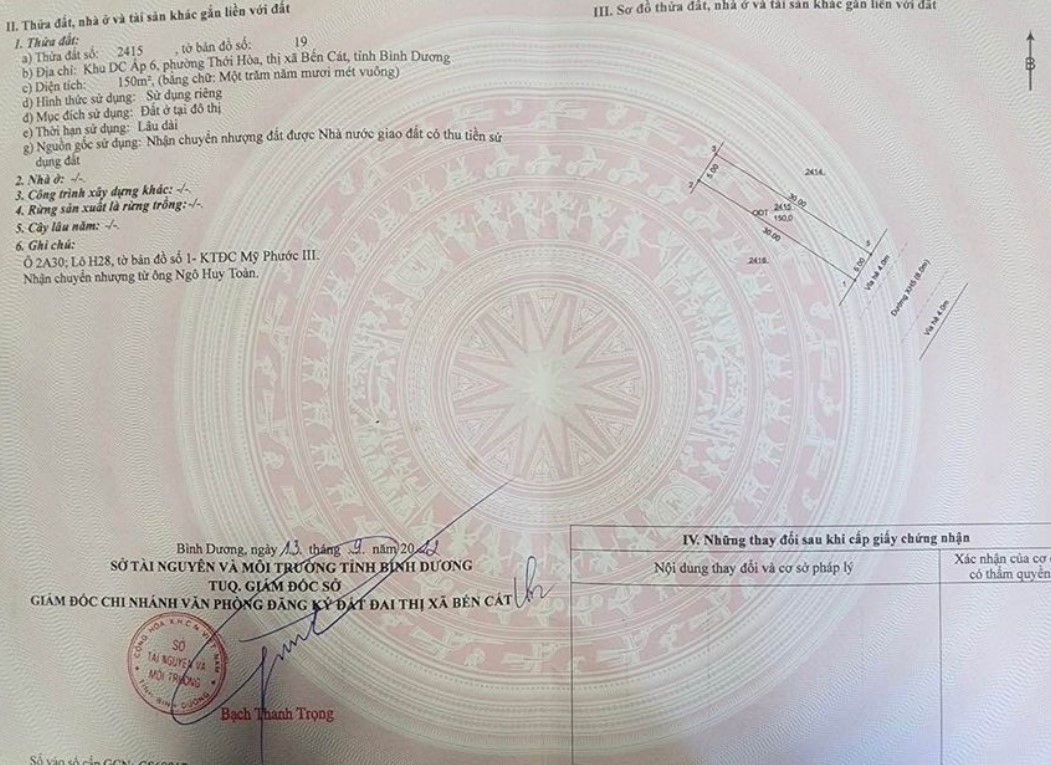 II. Thửa đất, nhà ở và tài sản khác gắn liền với đất
1. Thửa đất:
a) Thửa đất số: 2415 , tờ bản đồ số: 19
b) Địa chỉ: Khu DC Ấp 6, phường Thới Hòa, thị xã Bến Cát, tỉnh Bình Dương
c) Diện tích: 150m², (bằng chữ: Một trăm năm mươi mét vuông)
d) Hình thức sử dụng: Sử dụng riêng
đ) Mục đích sử dụng: Đất ở tại đô thị
e) Thời hạn sử dụng: Lâu dài
g) Nguồn gốc sử dụng: Nhận chuyển nhượng đất được Nhà nước giao đất có thu tiền sử
dụng đất
2. Nhà ở: -/-.
3. Công trình xây dựng khác: -/-.
4. Rừng sản xuất là rừng trồng: -/-.
5. Cây lâu năm: -/-.
6. Ghi chú:
Ô 2A30; Lô H28, tờ bản đồ số 1- KTĐC Mỹ Phước III.
Nhận chuyển nhượng từ ông Ngô Huy Toàn.
Bình Dương, ngày 13 tháng 9 năm 2022
SỞ TÀI NGUYÊN VÀ MÔI TRƯỜNG TỈNH BÌNH DƯƠNG
TUQ. GIÁM ĐỐC SỞ
GIÁM ĐỐC CHI NHÁNH VĂN PHÒNG ĐĂNG KÝ ĐẤT ĐAI THỊ XÃ BẾN CÁT
CỘNG HÒA X.H.C.N VIỆT NAM
SỞ
TÀI NGUYÊN VÀ
MÔI TRƯỜNG
TỈNH BÌNH DƯƠNG
Bạch Thanh Trọng
Số vào sổ cấp GCN:
III. Sơ đồ thửa đất, nhà ở và tài sản khác gắn liền với đất
B
3
5.00
2
2414
30.00
ODT 2415
150.0
30.00
2416
5.00
1
Vỉa hè 4.0m
Đường XH5 (8.0m)
Vỉa hè 4.0m
IV. Những thay đổi sau khi cấp giấy chứng nhận
Nội dung thay đổi và cơ sở pháp lý
Xác nhận của cơ
có thẩm quyền